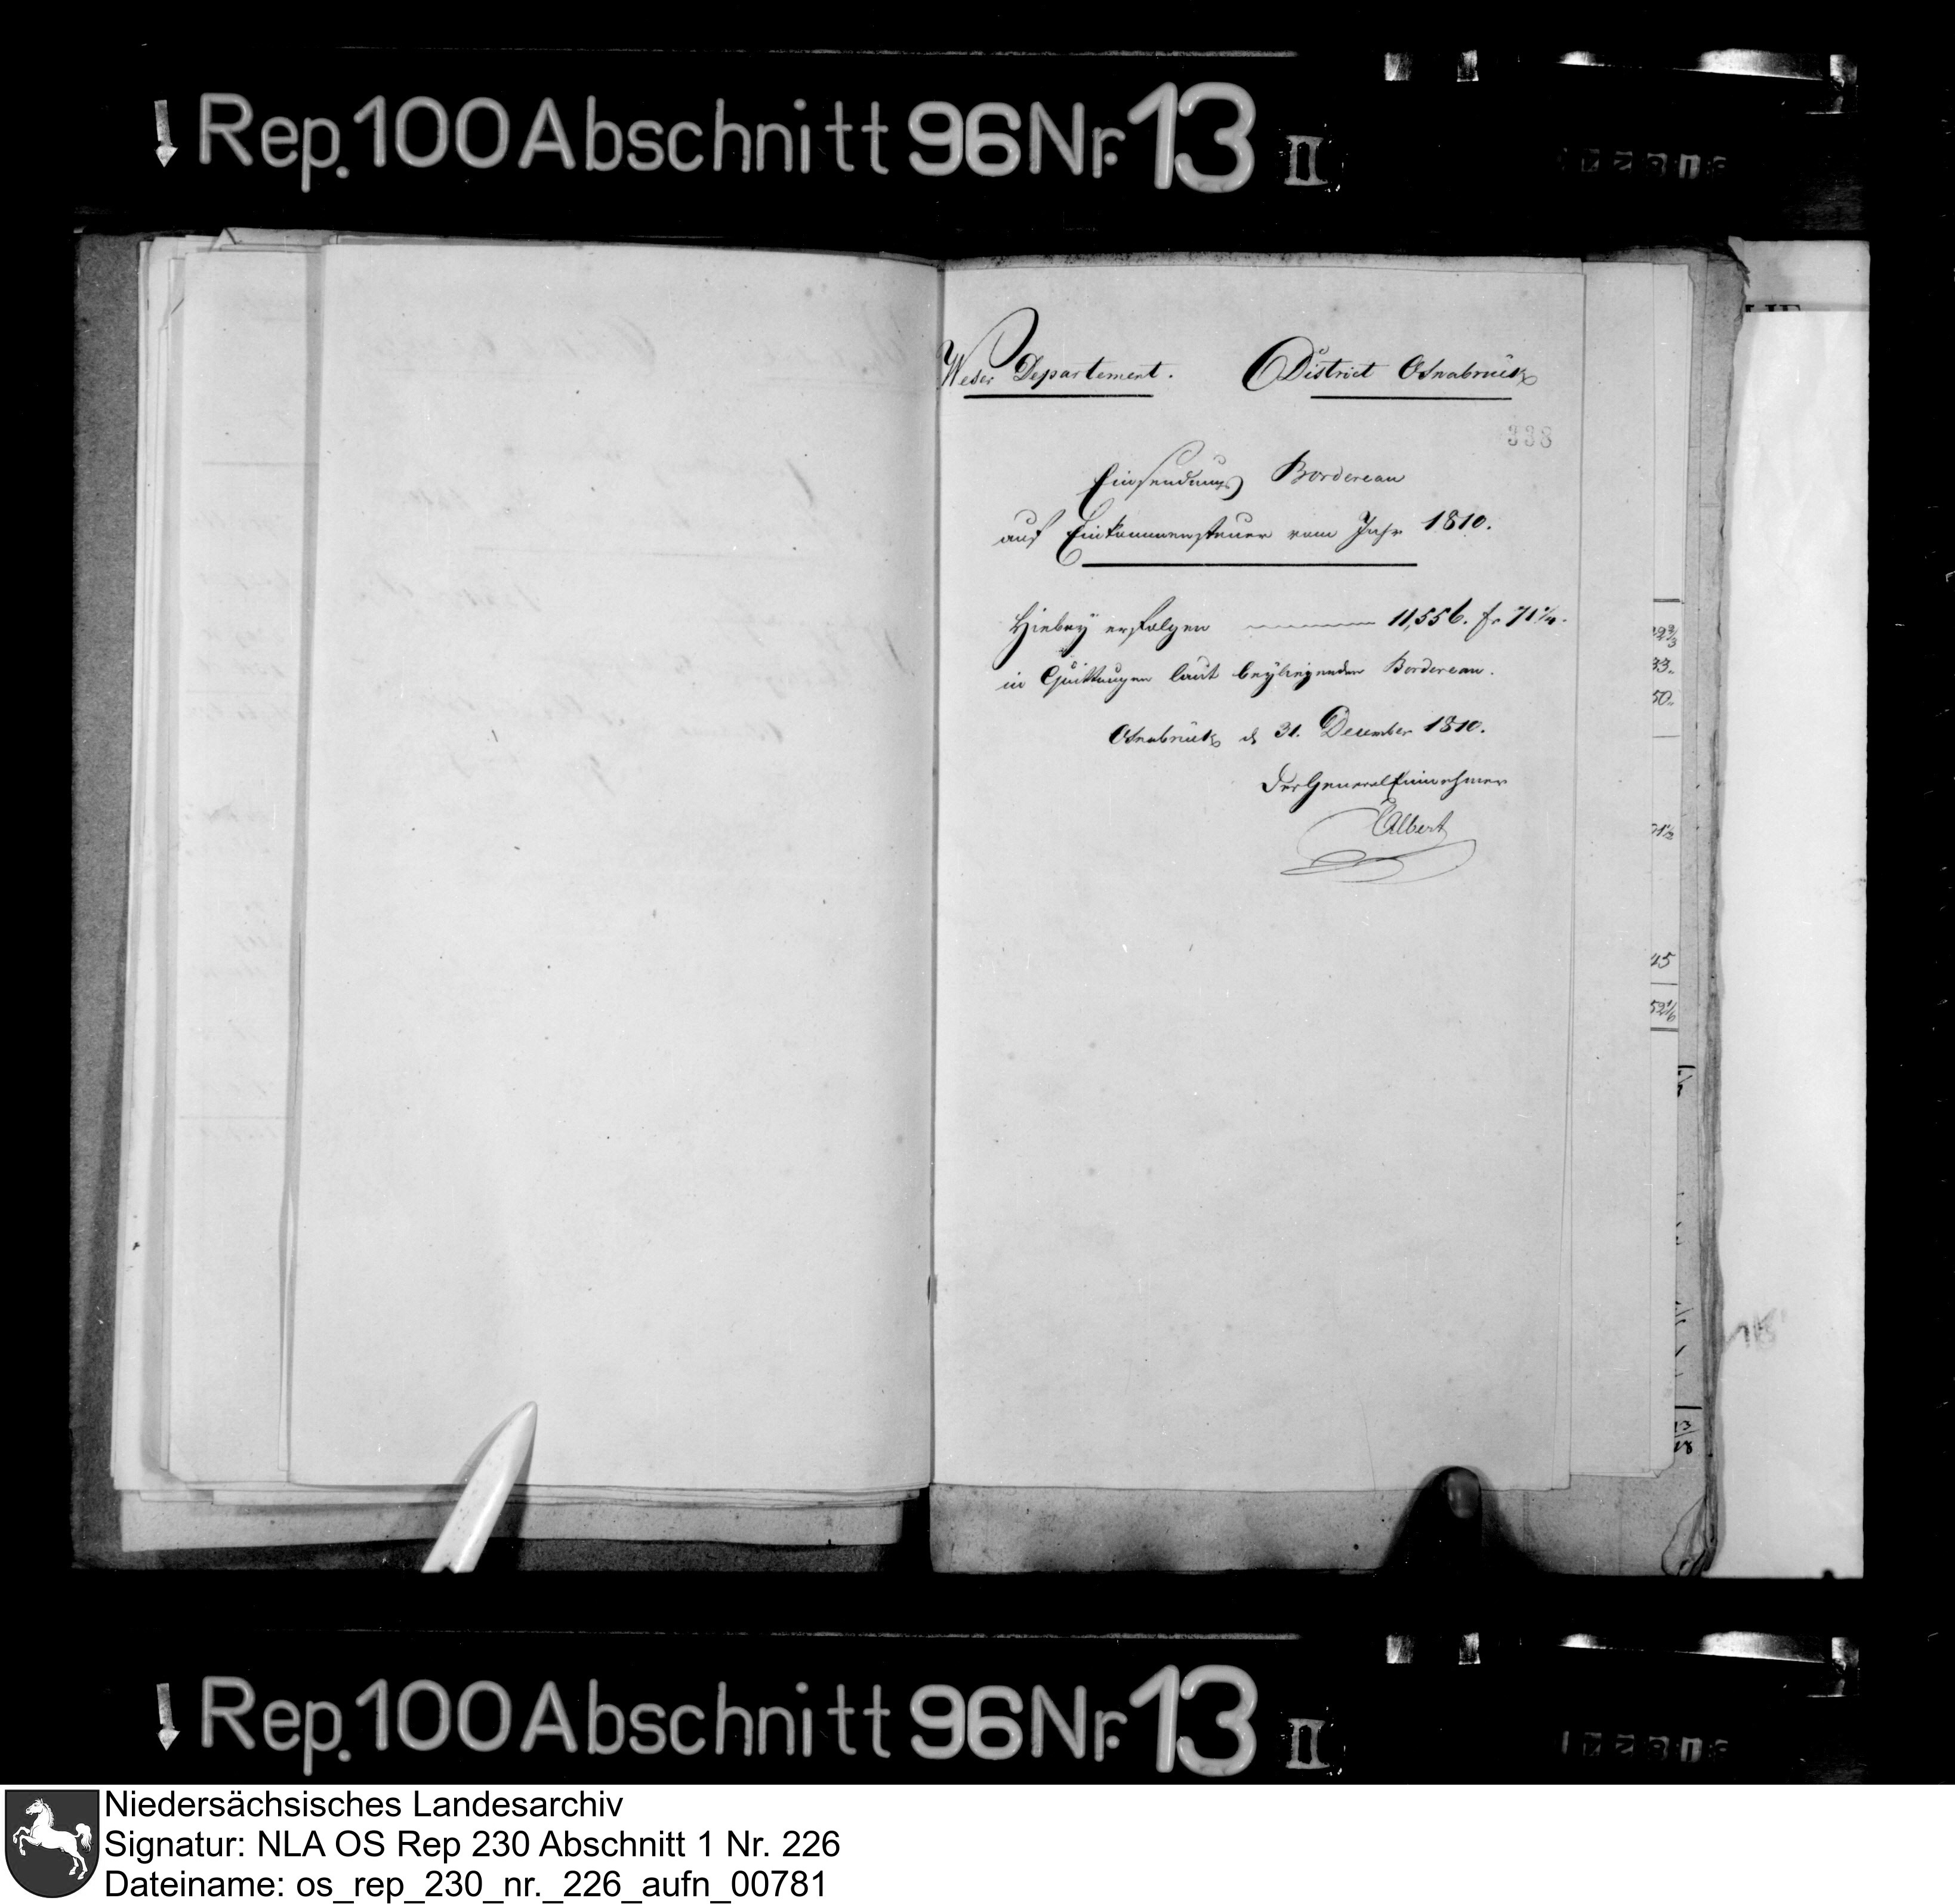 Rep. 100 Abschnitt 96 Nr. 13 II
Weser Departement. District Osnabrück
338
Einsendungs Bordereau
auf Einkommensteuer vom Jahr 1810.
Hiebey erfolgen 11,556. fr 71 1/4.
in Quittungen laut beyliegenden Bordereau.
Osnabrück d 31. December 1810.
Der General Einnehmer
Albert
33.
50.
45
Rep. 100 Abschnitt 96 Nr. 13 II
Niedersächsisches Landesarchiv
Signatur: NLA OS Rep 230 Abschnitt 1 Nr. 226
Dateiname: os_rep_230_nr._226_aufn_00781